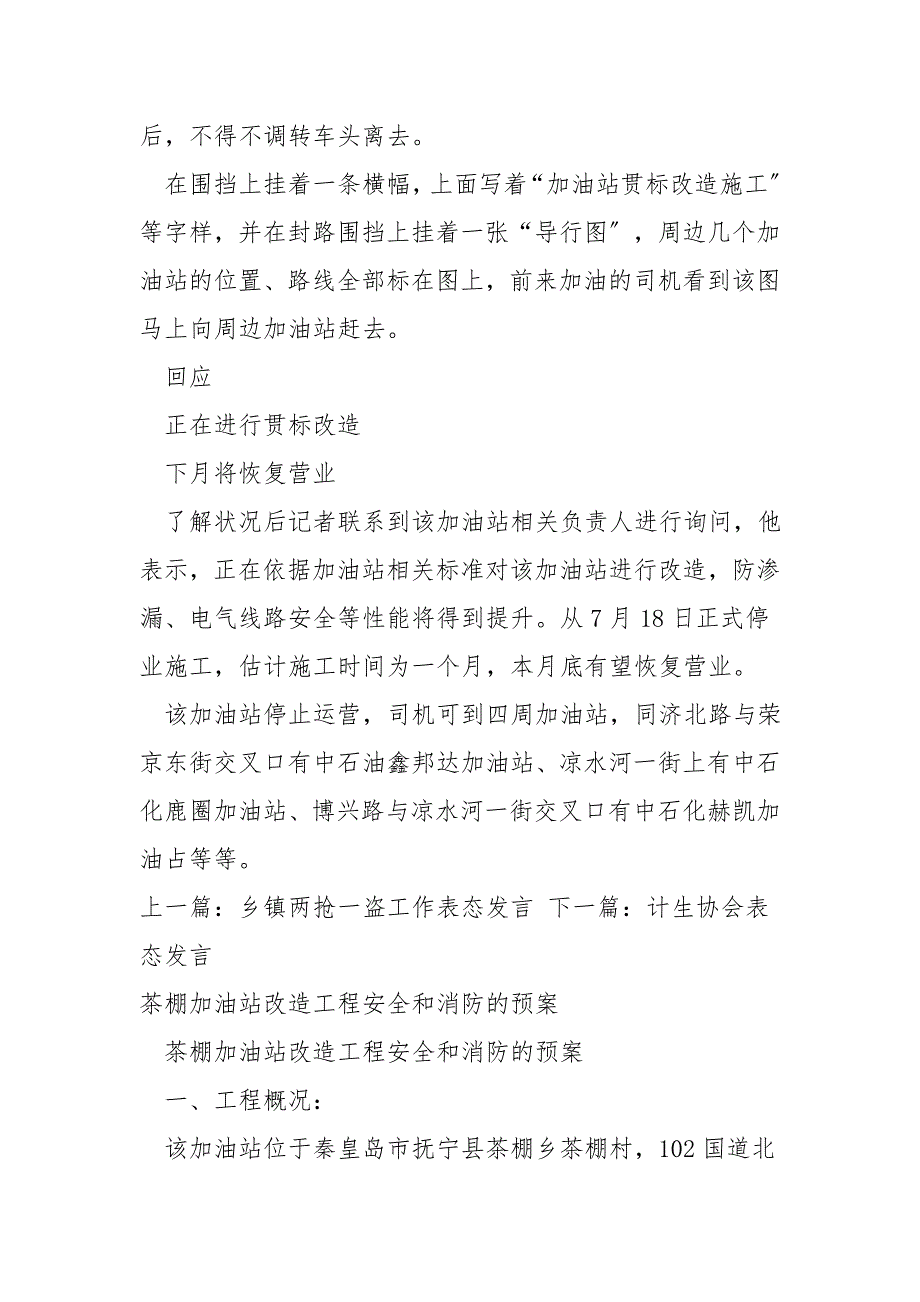 后，不得不调转车头离去。
在围挡上挂着一条横幅，上面写着“加油站贯标改造施工〞
等字样，并在封路围挡上挂着一张“导行图〞，周边几个加
油站的位置、路线全部标在图上，前来加油的司机看到该图
马上向周边加油站赶去。
回应
正在进行贯标改造
下月将恢复营业
了解状况后记者联系到该加油站相关负责人进行询问，他
表示，正在依据加油站相关标准对该加油站进行改造，防渗
漏、电气线路安全等性能将得到提升。从 7 月 18 日正式停
业施工，估计施工时间为一个月，本月底有望恢复营业。
该加油站停止运营，司机可到四周加油站，同济北路与荣
京东街交叉口有中石油鑫邦达加油站、凉水河一街上有中石
化鹿圈加油站、博兴路与凉水河一街交叉口有中石化赫凯加
油占等等。
上一篇：乡镇两抢一盗工作表态发言 下一篇：计生协会表
态发言
茶棚加油站改造工程安全和消防的预案
茶棚加油站改造工程安全和消防的预案
一、工程概况：
该加油站位于秦皇岛市抚宁县茶棚乡茶棚村，102 国道北